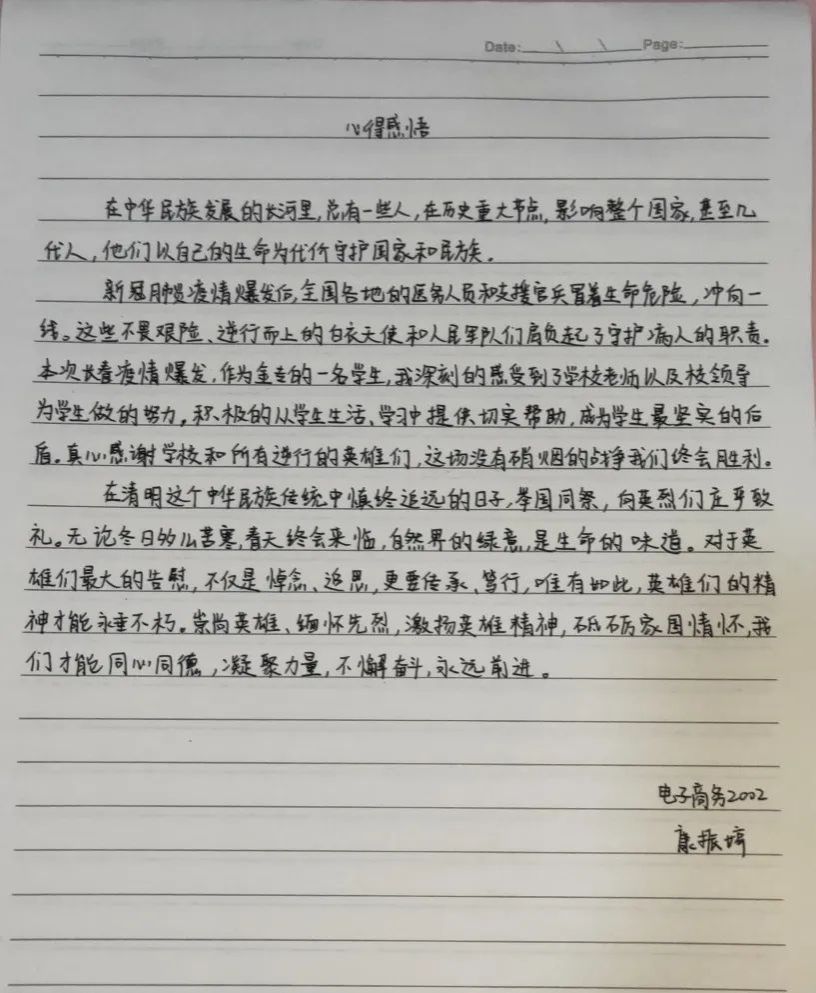 Date: \ \ Page:
心得感悟
在中华民族发展的长河里,总有一些人,在历史重大节点,影响整个国家,甚至几
代人,他们以自己的生命为代价守护国家和民族。
新冠肺炎疫情爆发后,全国各地的医务人员和支援官兵冒着生命危险,冲向一
线。这些不畏艰险、逆行而上的白衣天使和人民军队们肩负起了守护病人的职责.
本次长春疫情爆发,作为金专的一名学生,我深刻的感受到了学校老师以及校领导
为学生做的努力,积极的从学生生活、学习中提供切实帮助,成为学生最坚实的后
盾。真心感谢学校和所有逆行的英雄们,这场没有硝烟的战争我们终会胜利。
在清明这个中华民族传统中慎终追远的日子,举国同祭,向英烈们庄乎致
礼。无论冬日多么苦寒,春天终会来临,自然界的绿意,是生命的味道。对于英
雄们最大的告慰,不仅是悼念、追思,更要传承、笃行,唯有如此,英雄们的精
神才能永垂不朽。崇尚英雄、缅怀先烈,激扬英雄精神,砥砺家国情怀,我
们才能同心同德,凝聚力量,不懈奋斗,永远前进。
电子商务2002
康振婷